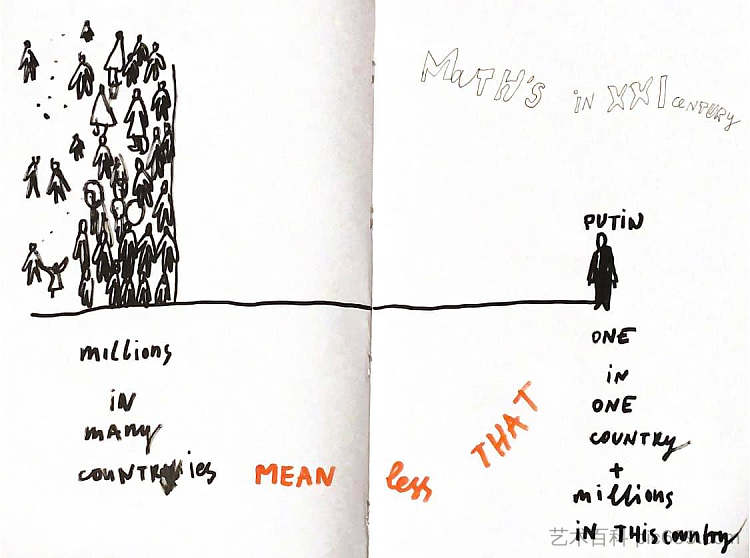 MATH'S in XXI CENTURY
PUTIN
millions
IN
MANY
COUNTRies
MEAN less THAT
ONE
in
ONE
COUNTRY
+
millions
IN THIS country